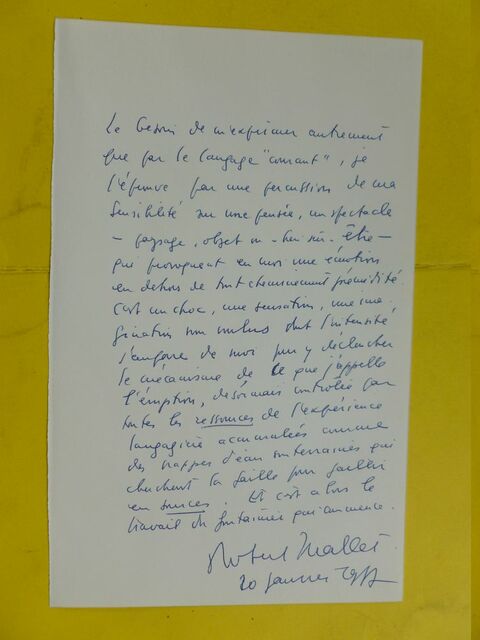 Le besoin de m'exprimer autrement
que par le langage "courant", je
l'éprouve par une percussion de ma
sensibilité sur une pensée, un spectacle
- paysage, objet ou être -
qui provoquent en moi une émotion
en dehors de tout cheminement prémédité.
C'est un choc, une sensation, une ima-
gination non voulus dont l'intensité
s'empare de moi pour y déclencher
le mécanisme de ce que j'appelle
l'éruption, désormais contrôlée par
toutes les ressources de l'expérience
langagière accumulées comme
des nappes d'eau souterraines qui
cherchent la faille pour jaillir
en sources. Et c'est alors le
travail du fontainier qui commence.
Robert Mallet
20 janvier